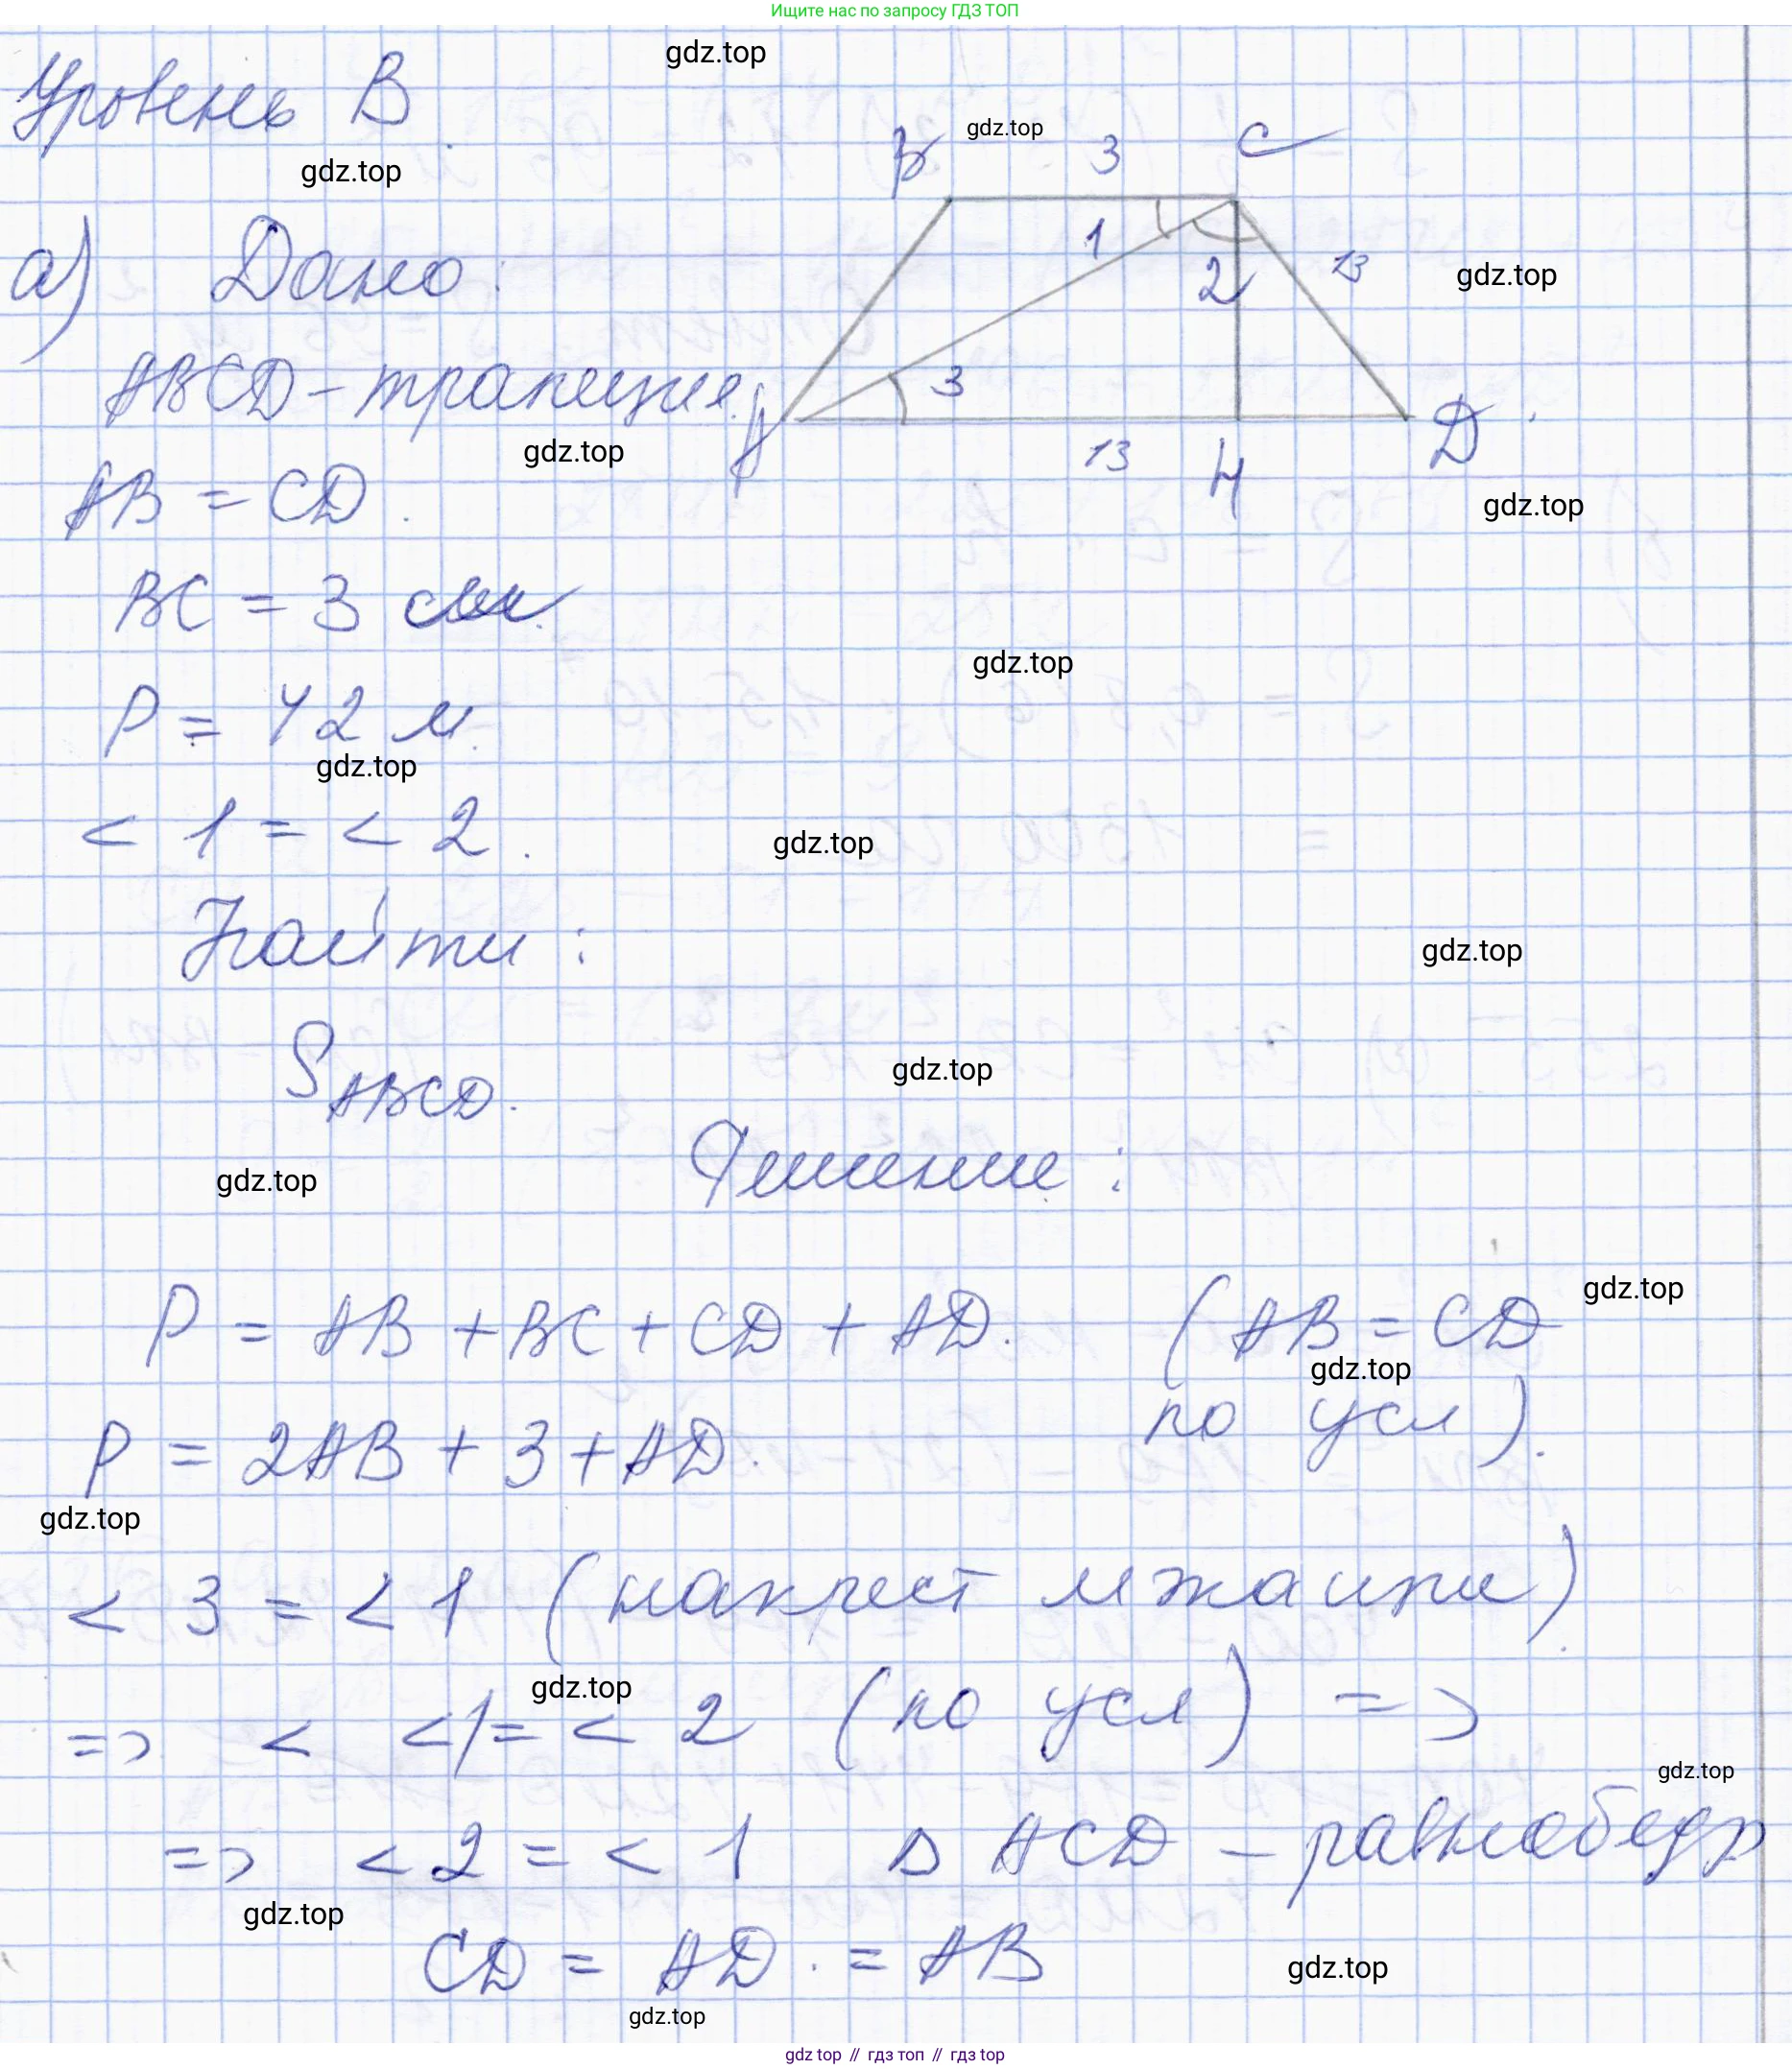 Ищите нас по запросу ГДЗ ТОП
gdz.top
Уровень В
gdz.top
В 3 С
gdz.top
а) Дано:
1
2
13
gdz.top
ABCD - трапеция.
3
A
D
gdz.top
13
H
AB = CD.
gdz.top
BC = 3 см.
gdz.top
P = 42 м.
gdz.top
< 1 = < 2.
gdz.top
Найти:
gdz.top
S ABCD.
gdz.top
Решение:
gdz.top
gdz.top
P = AB + BC + CD + AD. (AB = CD
gdz.top
по усл).
P = 2AB + 3 + AD.
gdz.top
< 3 = < 1 (накрест
gdz.top
=> < <1 = < 2 (по усл) =>
gdz.top
=> < 2 = < 1 Δ ACD - равнобедр
gdz.top
CD = AD. = AB
gdz.top
gdz.top
gdz top // гдз топ // гдз top